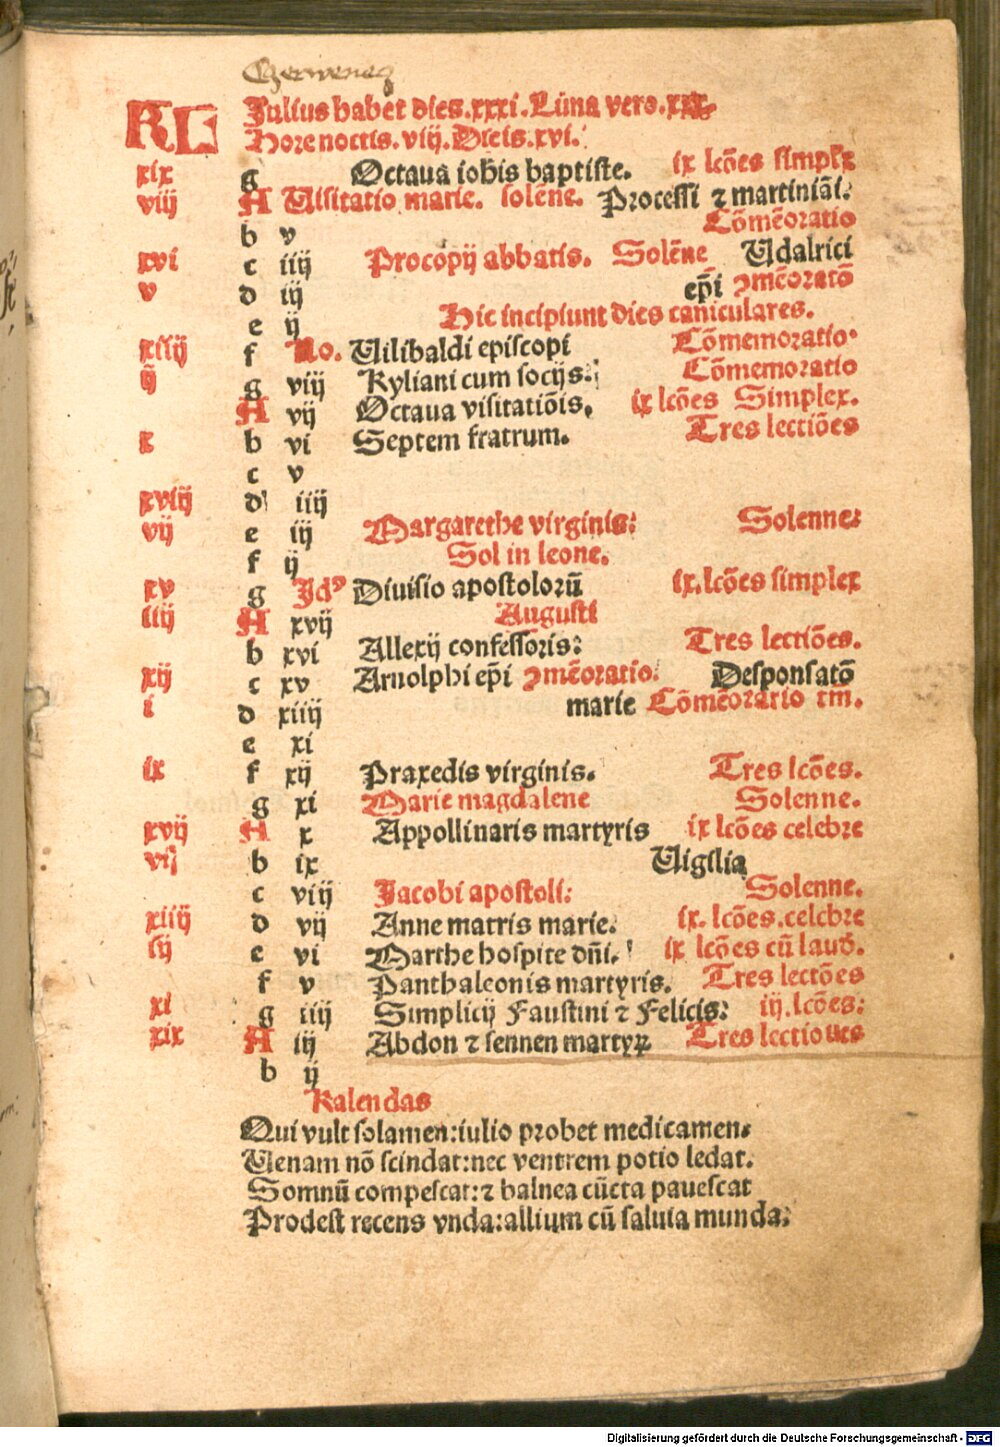 Czerwenecz
KL Julius habet dies.xxxi.Luna vero.xxx.
Hore noctis.viij.Dieis.xvi.
xix g Octaua iohis baptiste. ix lcões simplx
viij A Uisitatio marie. solẽne. Processi ⁊ martiniãi.
Cõmẽoratio
b v
xvi c iiij Procopij abbatis. Solẽne Udalrici
v d iij ep̃i ꝯmẽoratõ
e ij Hic incipiunt dies caniculares.
xiiij f No. Uilibaldi episcopi Cõmemoratio.
ij g viij Kyliani cum socijs. Cõmemoratio
A vij Octaua visitatiõis. ix lcões Simplex.
x b vi Septem fratrum. Tres lectiões
c v
xviij d iiij
vij e iij Margarethe virginis: Solenne:
f ij Sol in leone.
xv g Jdꝰ Diuisio apostolorũ ix.lcões simplex
iiij A xvij Augusti
b xvi Allexij confessoris: Tres lectiões.
xij c xv Arnolphi ep̃i ꝯmẽoratio. Desponsatõ
i d xiiij marie Cõmẽoratio tm.
e xi
ix f xij Praxedis virginis. Tres lcões.
g xi Marie magdalene Solenne.
xvij A x Appollinaris martyris ix lcões celebre
vij b ix Uigilia
c viij Jacobi apostoli: Solenne.
xiiij d vij Anne matris marie. ix. lcões.celebre
iij e vi Marthe hospite dñi. ix lcões cũ laud.
f v Panthaleonis martyris. Tres lectões
xi g iiij Simplicij Faustini ⁊ Felicis: iij.lcões:
xix A iij Abdon ⁊ sennen martyꝝ Tres lectiones
b ij
Kalendas
Qui vult solamen:iulio probet medicamen.
Uenam nõ scindat:nec ventrem potio ledat.
Somnũ compescat:⁊ balnea cũcta pauescat
Prodest recens vnda:allium cũ saluia munda.
Digitalisierung gefördert durch die Deutsche Forschungsgemeinschaft - DFG